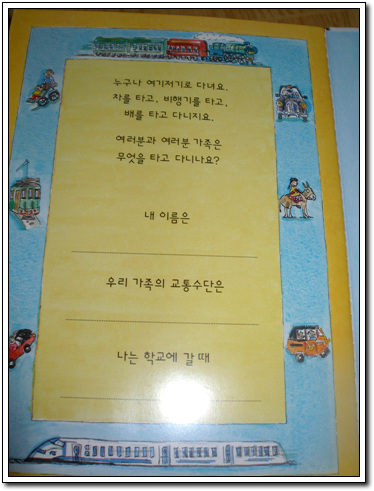 누구나 여기저기로 다녀요.
차를 타고, 비행기를 타고,
배를 타고 다니지요.
여러분과 여러분 가족은
무엇을 타고 다니나요?
내 이름은
우리 가족의 교통수단은
나는 학교에 갈 때